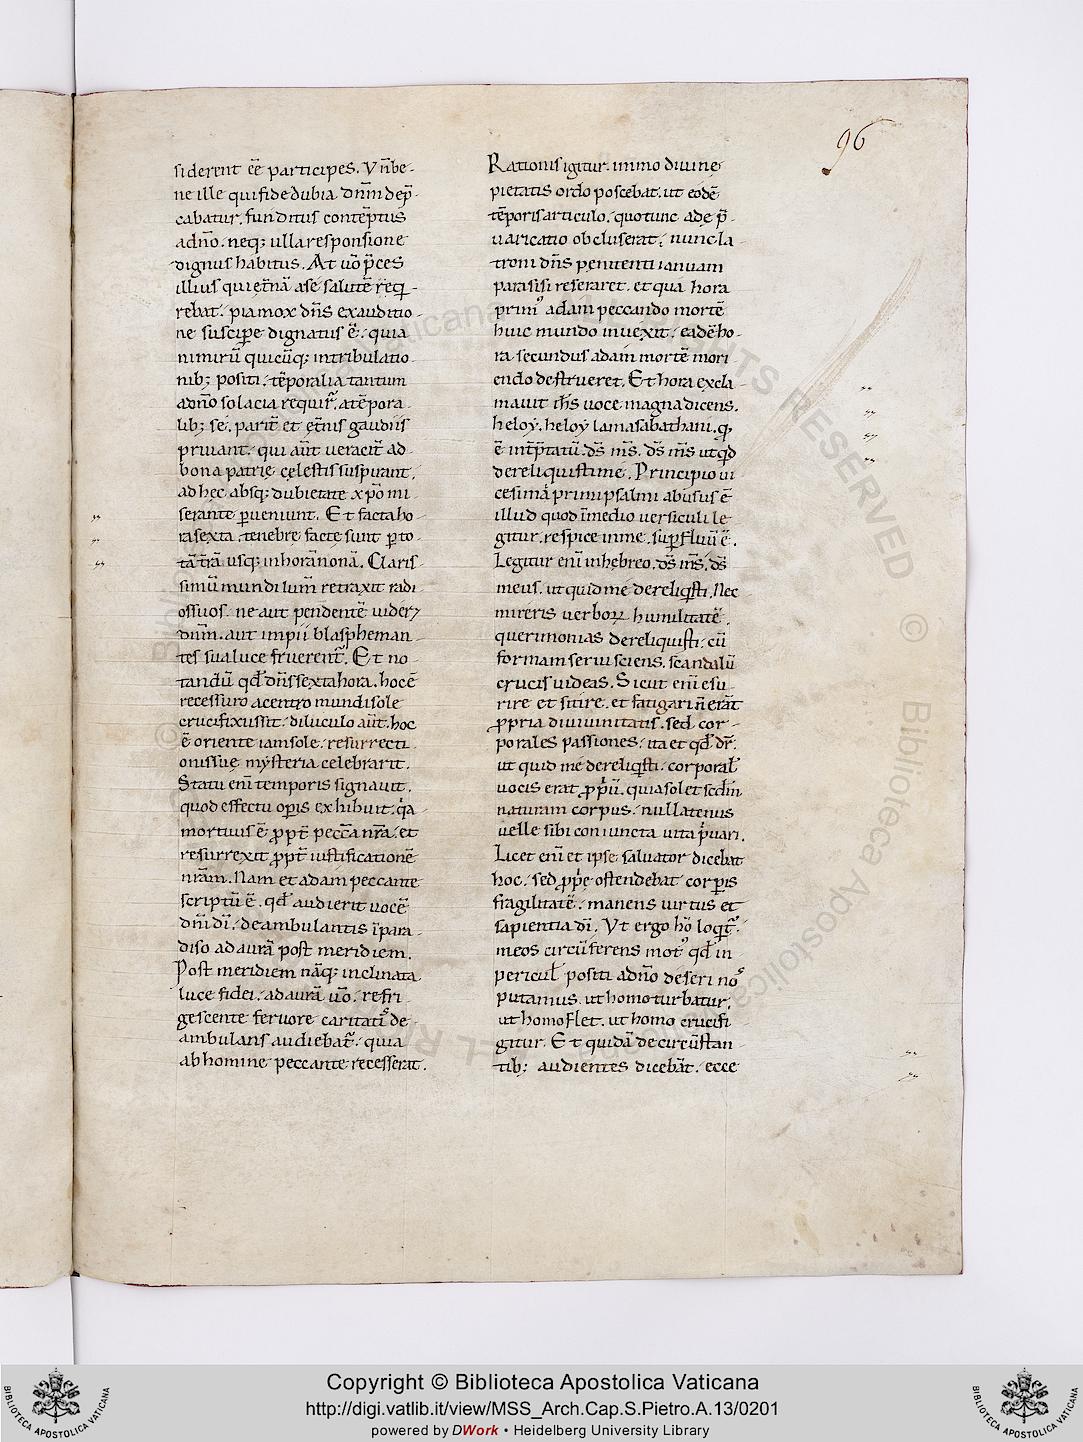 96
siderent eē participes. Vn̄ be-
ne ille qui fide dubia dn̄m dep̄-
cabatur. funditus contēptus
adn̄o. neq; ulla responsione
dignus habitus. At uō p̄ces
illius qui et̄nā a se salutē req̄-
rebat. pia mox dn̄s exauditio-
ne suscip̄e dignatus ē. quia
nimirū quicūq; in tribulatio-
nib; positi. tēporalia tantum
adn̄o solacia requir̄. a tēpora-
lib; se parit̄ et et̄nis gaudiis
priuant. qui aūt ueracit̄ ad
bona patrię cęlestis suspirant.
ad hęc absq; dubietate xp̄o mi-
serante p̄ueniunt. Et facta ho-
ra sexta. tenebre facte sunt p̄ to-
tā t̄rā usq; in horā nonā. Claris-
simū mundi lum̄ retraxit radi-
os suos. ne aut pendentē uider̄
dn̄m. aut impii blaspheman-
tes sua luce fruerent̄. Et no-
tandū qđ dn̄s sexta hora. hoc ē
recessuro a centro mundi sole
crucifixus sit. diluculo aūt. hoc
ē oriente iam sole. resurrecti-
onis suę mysteria celebrarit.
Statu eni temporis signauit.
quod effectu op̄is exhibuit. q̄a
mortuus ē ꝓpt̄ peccā nr̄a. et
resurrexit ꝓpt̄ iustificationē
nr̄am. Nam et adam peccante
scriptū ē. qđ audierit uocē
dn̄i dī. deambulantis ī para-
diso ad aurā post meridiem.
Post meridiem nāq; inclinata
luce fidei. ad aurā uō. refri-
gescente feruore caritatis de-
ambulans audiebat̄. quia
ab homine peccante recesserat.
Rationis igitur. immo diuine
pietatis ordo poscebat. ut eodē
tēporis articulo. quo tunc adę p̄-
uaricatio obcluserat. nunc la-
troni dn̄s penitenti ianuam
parasisi reseraret. et qua hora
primus adam peccando mortē
huic mundo inuexit. eadē ho-
ra secundus adam mortē mori-
endo destrueret. Et hora excla-
mauit ih̄s uoce magna dicens.
heloy. heloy lamasabathani. q̄
ē int̄p̄tatū. ds̄ m̄s. ds̄ m̄s ut qđ
dereliquisti me. Principio ui-
cesimi primi psalmi abusus ē
illud quod ī medio uersiculi le-
gitur. respice in me. sup̄fluū ē.
Legitur eni in hebreo. ds̄ m̄s. ds̄
meus. ut quid me dereliq̄sti. Nec
mireris uerboꝝ humilitatē.
querimonias derelicti. cū
formam serui sciens. scandalū
crucis uideas. Sicut eni esu-
rire et sitire. et fatigari n̄ erāt
ꝓpria diuiuinitatis. sed cor-
porales passiones. ita et qđ dr̄.
ut quid me dereliq̄sti. corporał
uocis erat ꝓp̄ū. quia solet scdm̄
naturam corpus. nullatenus
uelle sibi coniuncta uita p̄uari.
Licet eni et ipse saluator dicebat
hoc. sed ꝓp̄e ostendebat corp̄is
fragilitatē. manens uirtus et
sapientia dī. Vt ergo hō loqit̄.
meos circūferens mot᾽ qđ in
pericuł positi adn̄o deseri nos
putamus. ut homo turbatur.
ut homo flet. ut homo crucifi-
gitur. Et quidā de circūstan-
tib; audientes dicebāt. ecce
Copyright © Biblioteca Apostolica Vaticana
http://digi.vatlib.it/view/MSS_Arch.Cap.S.Pietro.A.13/0201
powered by DWork • Heidelberg University Library